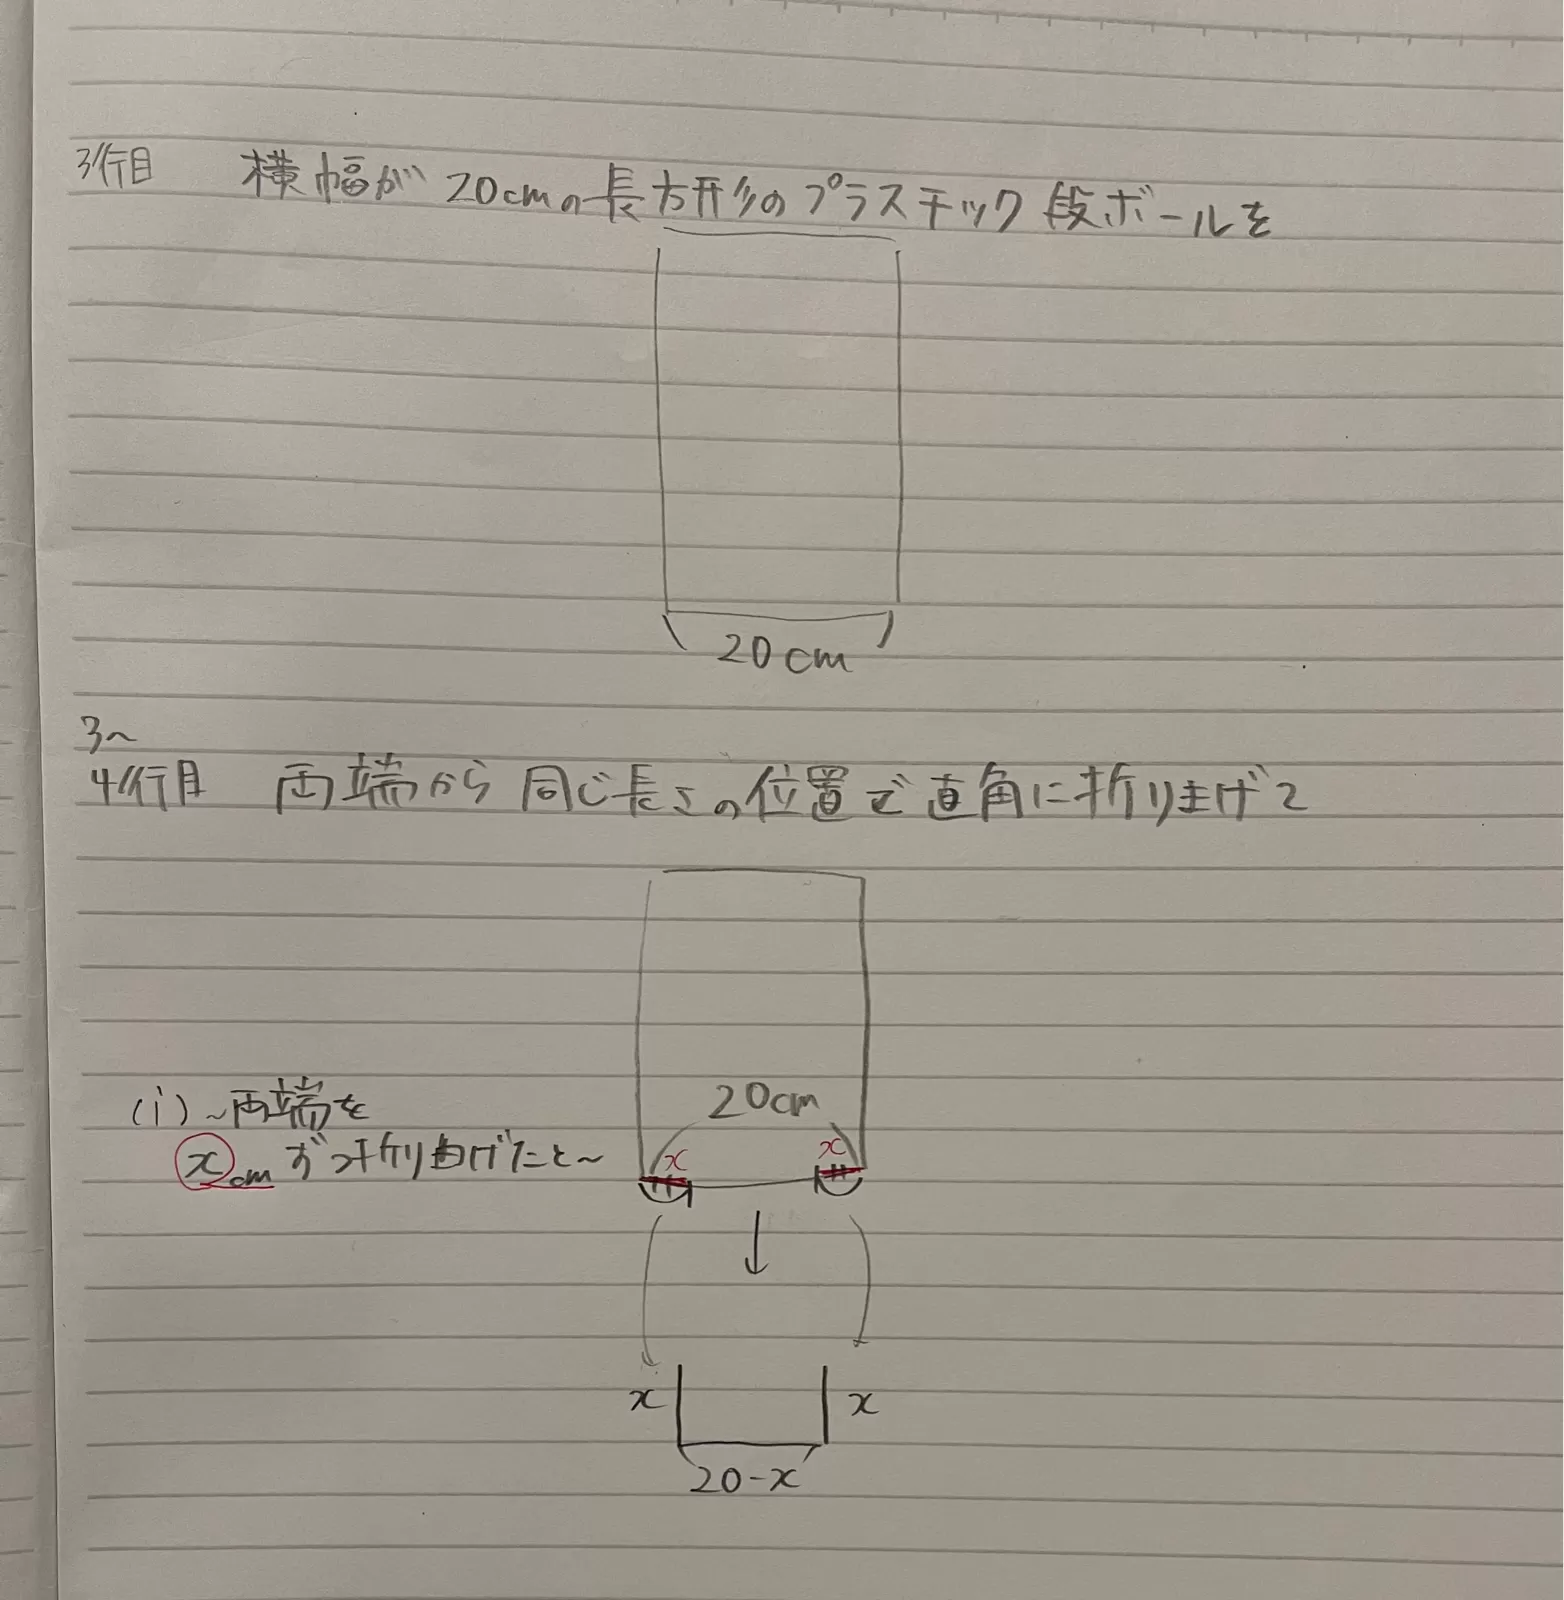 3行目 横幅が20cmの長方形のプラスチック段ボールを
20cm
3〜
4行目 両端から同じ長さの位置で直角に折りまげて
20cm
(i)〜両端を
x x
xcmずつ折り曲げたと〜
x x
20-x